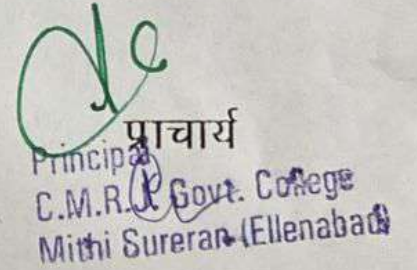 प्राचार्य
Principal
C.M.R.J. Govt. College
Mithi Sureran (Ellenabad)